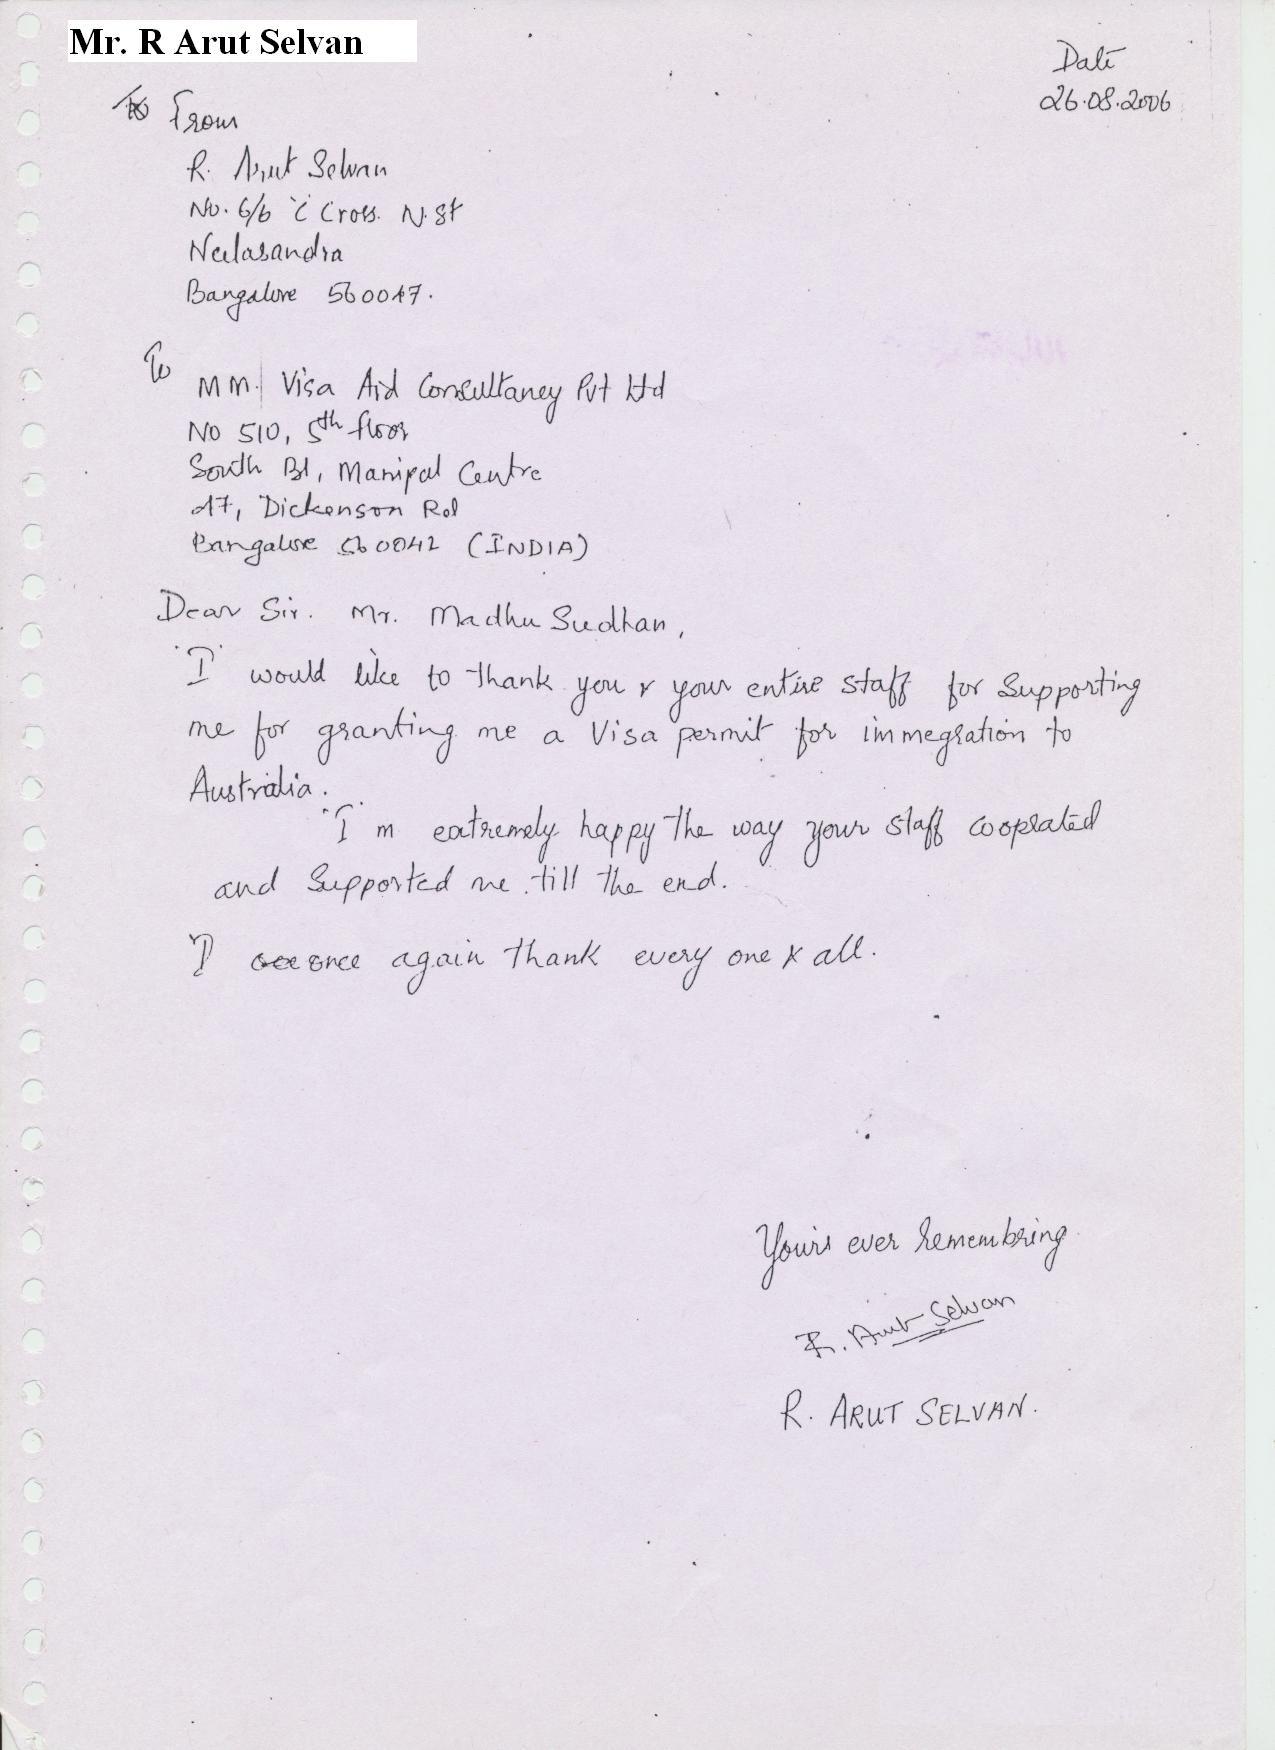 Mr. R Arut Selvan
Date
26.08.2006
To From
R. Arut Selvan
No. 6/6 'C Cross. N. St
Neelasandra
Bangalore 560047.
To
MM. Visa Aid Consultancy Pvt Ltd
No 510, 5th floor
South Bl, Manipal Centre
47, Dickenson Rd
Bangalore 560042 (INDIA)
Dear Sir. Mr. Madhu Sudhan,
"I" would like to thank you & your entire staff for Supporting
me for granting me a Visa permit for immegration to
Australia.
"I" m extremely happy the way your staff cooprated
and Supported me till the end.
I once again thank every one & all.
Yours ever Remembring
R. Arut Selvan
R. ARUT SELVAN.